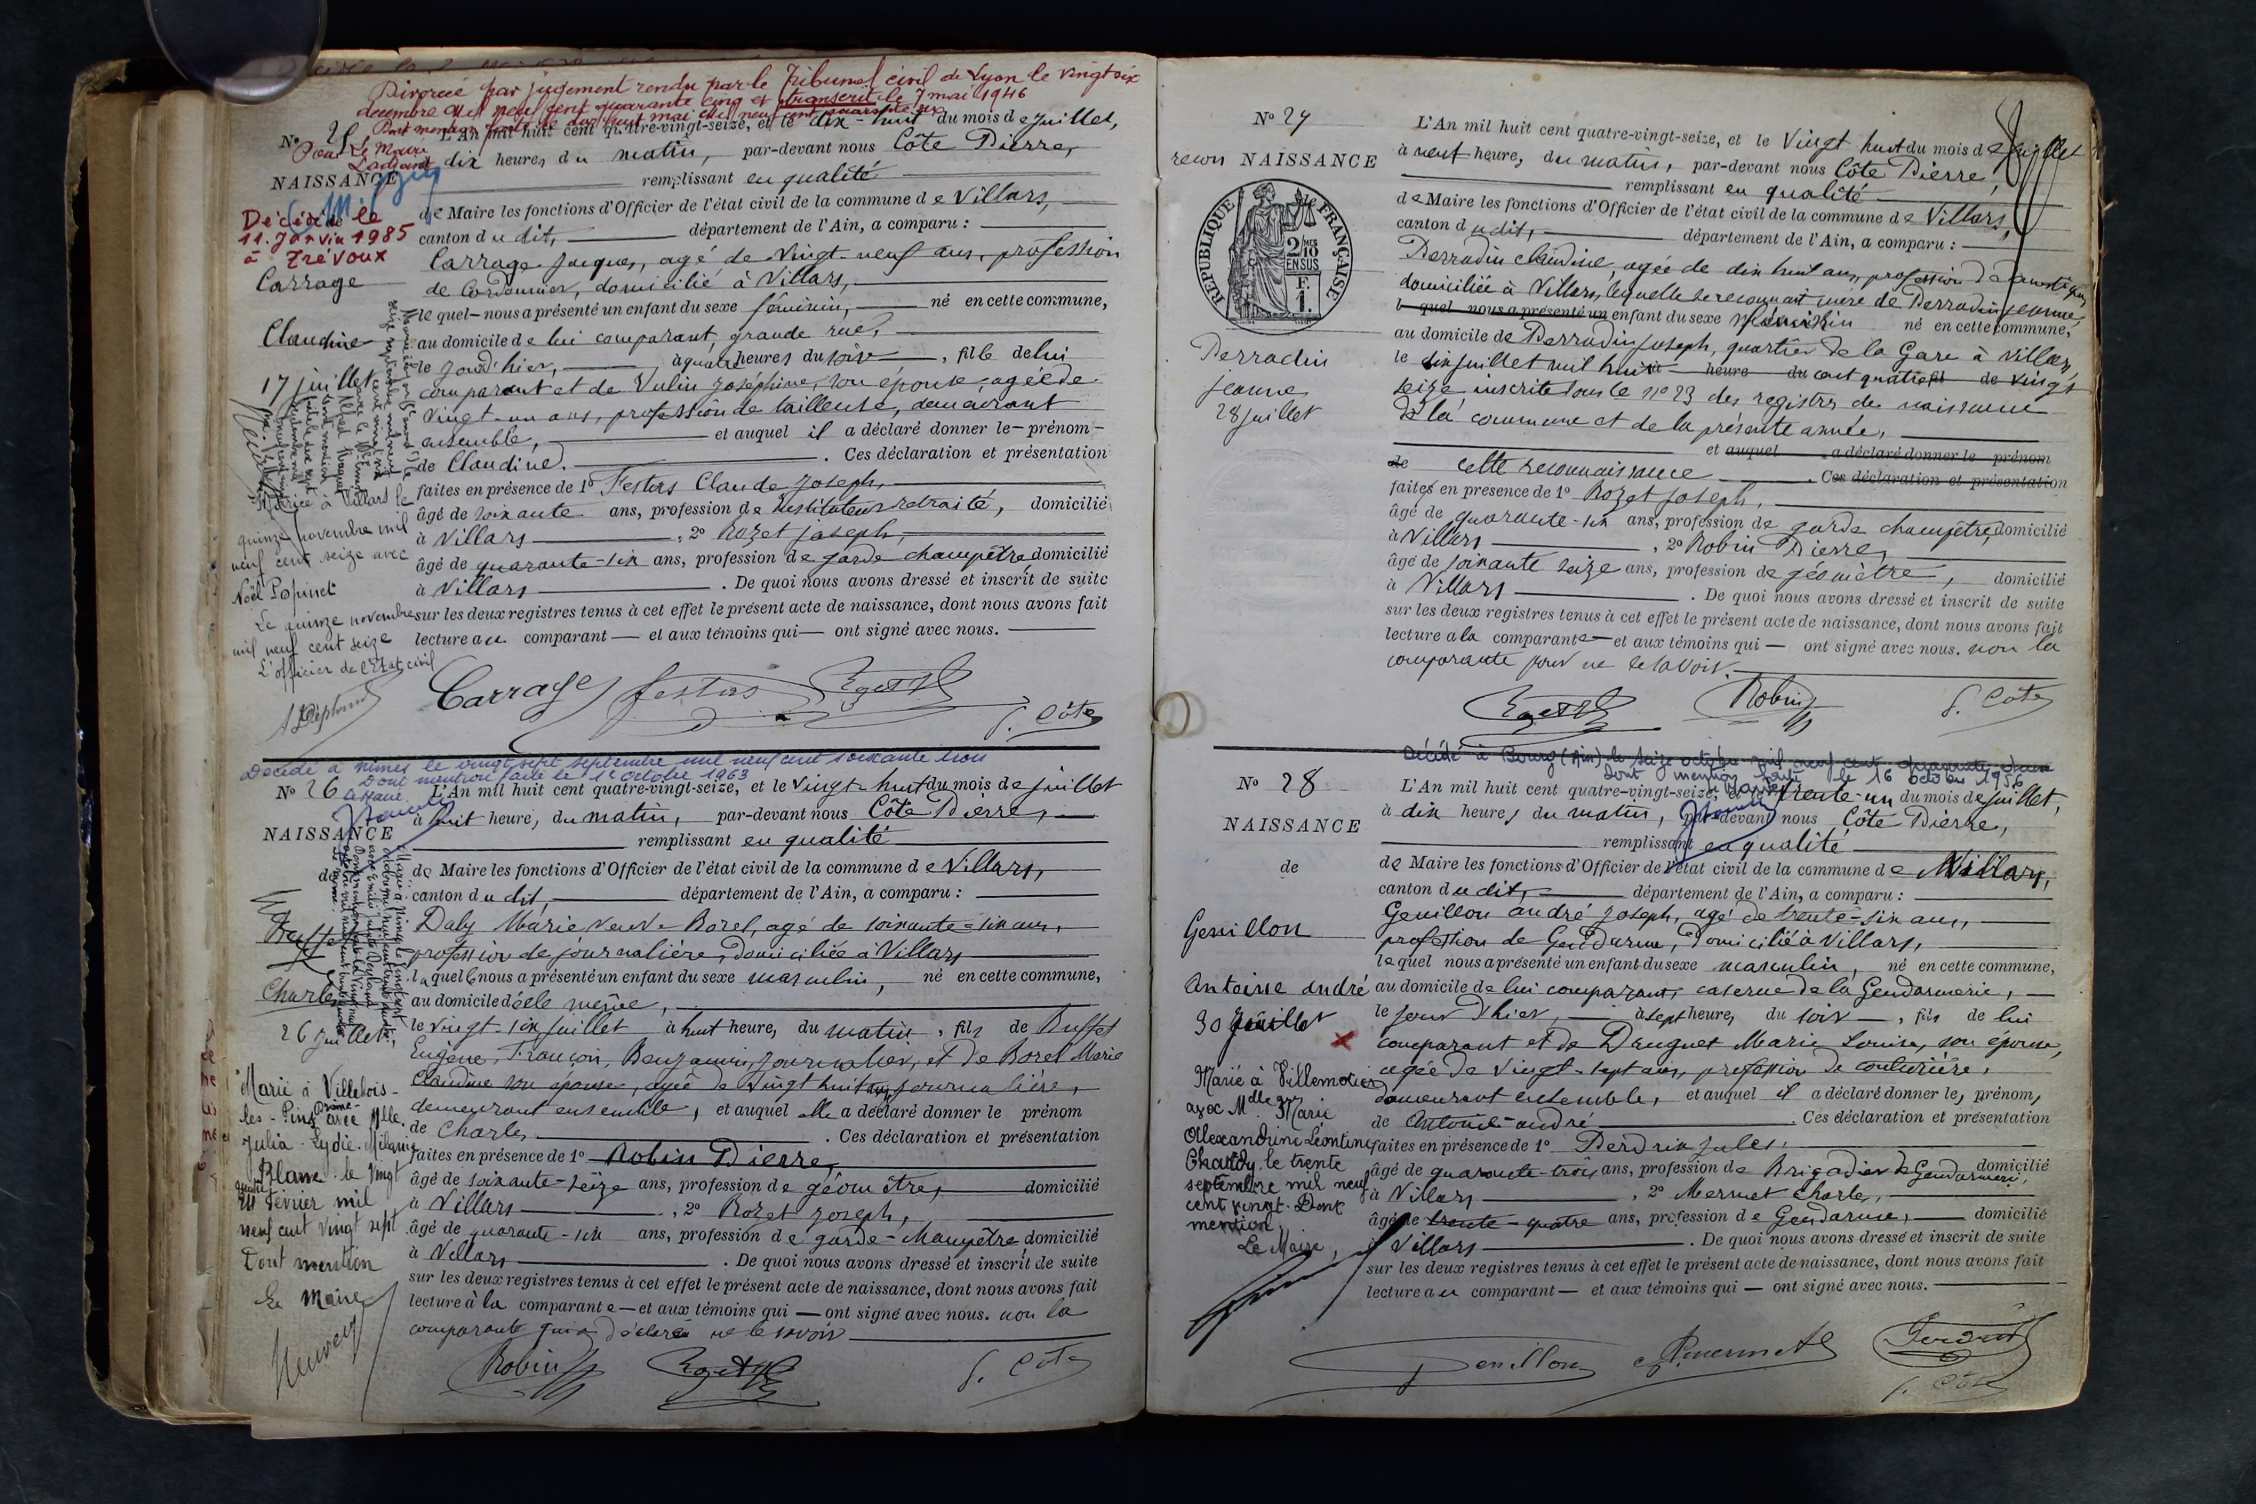 Divorcée par jugement rendu par le Tribunal civil de Lyon le vingt six
décembre mil neuf cent quarante cinq et transcrit le 7 mai 1946
Dont mention faite le mai mil neuf cent quarante six
Nº 25
L'An mil huit cent quatre-vingt-seize, et le dix-huit du mois de juillet,
Pour Le Maire
L'adjoint
à dix heures du matin, par-devant nous Côte Pierre,
NAISSANCE
remplissant en qualité
de
de Maire les fonctions d'Officier de l'état civil de la commune de Villars,
Décédée le
11. Janvier 1985
à Trévoux
canton dudit, département de l'Ain, a comparu :
Carrage Jacques, agé de vingt-neuf ans, profession
Carrage
de Cordonnier, domicilié à Villars,
lequel nous a présenté un enfant du sexe féminin, né en cette commune,
Claudine
au domicile de lui comparant, grande rue,
le jour d'hier, à quatre heures du soir, fille de lui
17 juillet
comparant et de Vulin Joséphine, son épouse, agée de
vingt-un ans, profession de tailleuse, demeurant
ensemble, et auquel il a déclaré donner le prénom
de Claudine. Ces déclaration et présentation
faites en présence de 1º Festas Claude Joseph,
âgé de soixante ans, profession de Instituteur retraité, domicilié
à Villars, 2º Rozet Joseph,
âgé de quarante-six ans, profession de garde champêtre, domicilié
à Villars. De quoi nous avons dressé et inscrit de suite
sur les deux registres tenus à cet effet le présent acte de naissance, dont nous avons fait
lecture au comparant et aux témoins qui ont signé avec nous.
Mariée à Villars le
quinze novembre mil
neuf cent seize avec
Noël Popinet
Le quinze novembre
mil neuf cent seize
L'officier de l'Etat civil
Carrage Festas Rozet P. Côte
Décédé à Nîmes le vingt sept septembre mil neuf cent soixante trois
Dont mention faite le 1er octobre 1963
Le Maire
Nº 26
L'An mil huit cent quatre-vingt-seize, et le vingt-huit du mois de juillet
à huit heure, du matin, par-devant nous Côte Pierre,
NAISSANCE
remplissant en qualité
de
de Maire les fonctions d'Officier de l'état civil de la commune de Villars,
canton dudit, département de l'Ain, a comparu :
Buffet
Daby Marie veuve Borel, agé de soixante-six ans,
profession de journalière, domiciliée à Villars
laquelle nous a présenté un enfant du sexe masculin, né en cette commune,
Charles
au domicile d'elle même,
le vingt-six juillet à huit heure, du matin, fils de Buffet
26 juillet,
Eugène, François, Benjamin, journalier, et de Borel Marie
Claudine son épouse, agée de vingt huit ans, journalière,
demeurant ensemble, et auquel elle a déclaré donner le prénom
de Charles. Ces déclaration et présentation
faites en présence de 1º Robin Pierre,
âgé de soixante-seize ans, profession de géomètre, domicilié
à Villars, 2º Rozet Joseph,
âgé de quarante-six ans, profession de garde-champêtre, domicilié
à Villars. De quoi nous avons dressé et inscrit de suite
sur les deux registres tenus à cet effet le présent acte de naissance, dont nous avons fait
lecture à la comparante et aux témoins qui ont signé avec nous. non la
comparante qui a déclaré ne le savoir
Marié à Villebois-
les-Pins Drôme avec Mlle
Julia-Lydie-Mélanie
Blanc le vingt
quatre février mil
neuf cent vingt sept
Dont mention
Le Maire
Robin Rozet P. Côte
Nº 27
L'An mil huit cent quatre-vingt-seize, et le vingt huit du mois de juillet
recon NAISSANCE
à neuf heure, du matin, par-devant nous Côte Pierre,
remplissant en qualité
de Maire les fonctions d'Officier de l'état civil de la commune de Villars,
canton dudit, département de l'Ain, a comparu :
RÉPUBLIQUE FRANÇAISE
2/10 EN SUS
F.
1.
Perradin Claudine, agée de dix huit ans, profession de domestique,
domiciliée à Villars, lequelle se reconnait mère de Perradin Jeanne,
lequel nous a présenté un enfant du sexe féminin né en cette commune,
au domicile de Perradin Joseph, quartier de la Gare à Villars,
Perradin
jeanne
28 juillet
le six juillet mil huit à heure du cent quatre fil de vingt
seize, inscrite sous le nº 23 des registres de naissance
de la commune et de la présente année,
et auquel a déclaré donner le prénom
de cette reconnaissance. Ces déclaration et présentation
faites en présence de 1º Rozet Joseph,
âgé de quarante-six ans, profession de garde champêtre, domicilié
à Villars, 2º Robin Pierre,
âgé de soixante seize ans, profession de géomètre, domicilié
à Villars. De quoi nous avons dressé et inscrit de suite
sur les deux registres tenus à cet effet le présent acte de naissance, dont nous avons fait
lecture à la comparante et aux témoins qui ont signé avec nous. non la
comparante pour ne le savoir.
Rozet Robin P. Côte
Décédé à Bourg (Ain) le seize octobre mil neuf cent
Dont mention faite le 16 octobre 1956
Le Maire
Nº 28
L'An mil huit cent quatre-vingt-seize, et le trente-un du mois de juillet,
à dix heures du matin, par-devant nous Côte Pierre,
NAISSANCE
remplissant en qualité
de
de Maire les fonctions d'Officier de l'état civil de la commune de Villars,
canton dudit, département de l'Ain, a comparu :
Genillon
Genillon andré Joseph, agé de trente-six ans,
profession de Gendarme, domicilié à Villars,
lequel nous a présenté un enfant du sexe masculin, né en cette commune,
Antoine andré
au domicile de lui comparant, caserne de la Gendarmerie,
30 Juillet
le jour d'hier, à sept heure, du soir, fils de lui
comparant et de Deuguet Marie Louise, son épouse,
agée de vingt-sept ans, profession de couturière,
demeurant ensemble, et auquel il a déclaré donner le, prénom,
de Antoine-andré. Ces déclaration et présentation
faites en présence de 1º Perdrix Jules,
âgé de quarante-trois ans, profession de Brigadier de Gendarmerie, domicilié
à Villars, 2º Mermet Charles,
âgé de trente-quatre ans, profession de Gendarme, domicilié
à Villars. De quoi nous avons dressé et inscrit de suite
sur les deux registres tenus à cet effet le présent acte de naissance, dont nous avons fait
lecture au comparant et aux témoins qui ont signé avec nous.
Marié à Villemotier
avec Melle Marie
Alexandrine Léontine
Chatdy le trente
septembre mil neuf
cent vingt. Dont
mention
Le Maire,
Genillon Mermet Perdrix
P. Côte